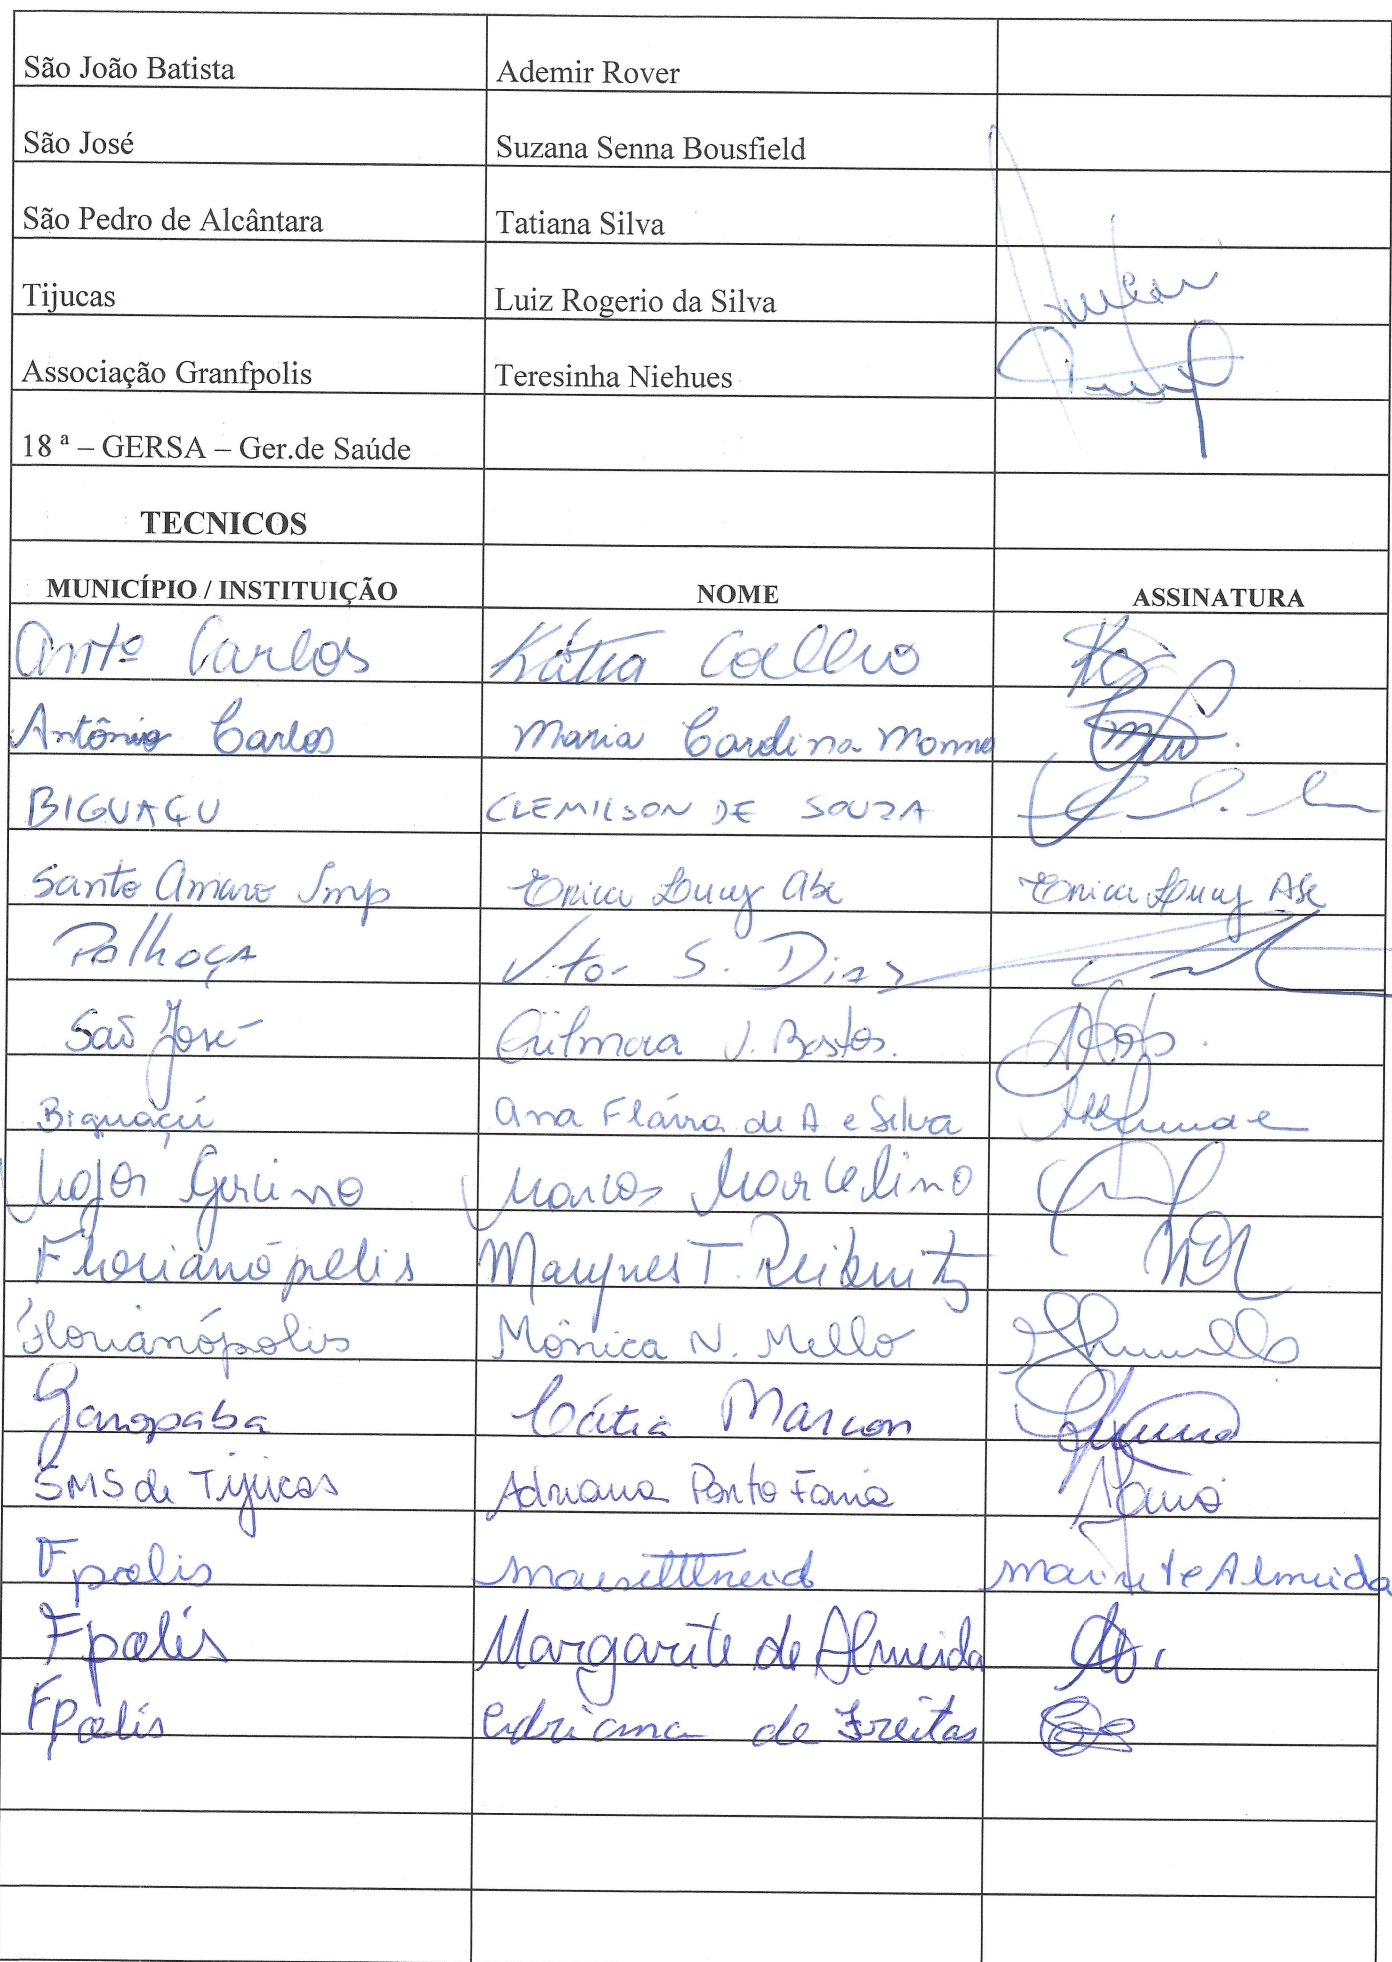 São João Batista Ademir Rover
São José Suzana Senna Bousfield
São Pedro de Alcântara Tatiana Silva
Tijucas Luiz Rogerio da Silva
Associação Granfpolis Teresinha Niehues
18 ª – GERSA – Ger.de Saúde
TECNICOS
MUNICÍPIO / INSTITUIÇÃO NOME ASSINATURA
Antº Carlos Kátia Coelho
Antônio Carlos Maria Cardina
BIGUAÇU CLEMILSON DE SOUZA
Santo Amaro Imp Erica
Palhoça Vitor S. Dias
São José Gilmara J. Bastos.
Biguaçú Ana Flávia de A e Silva
Major Gercino Marcos Marcelino
Florianópolis T. Reibnitz
Florianópolis Mônica N. Mello
Garopaba Cátia Marcon
SMS de Tijucas Adriana Porto Faria
Fpolis Marinete Almeida
Fpolis Margarete de Almeida
Fpolis Adriana de Freitas